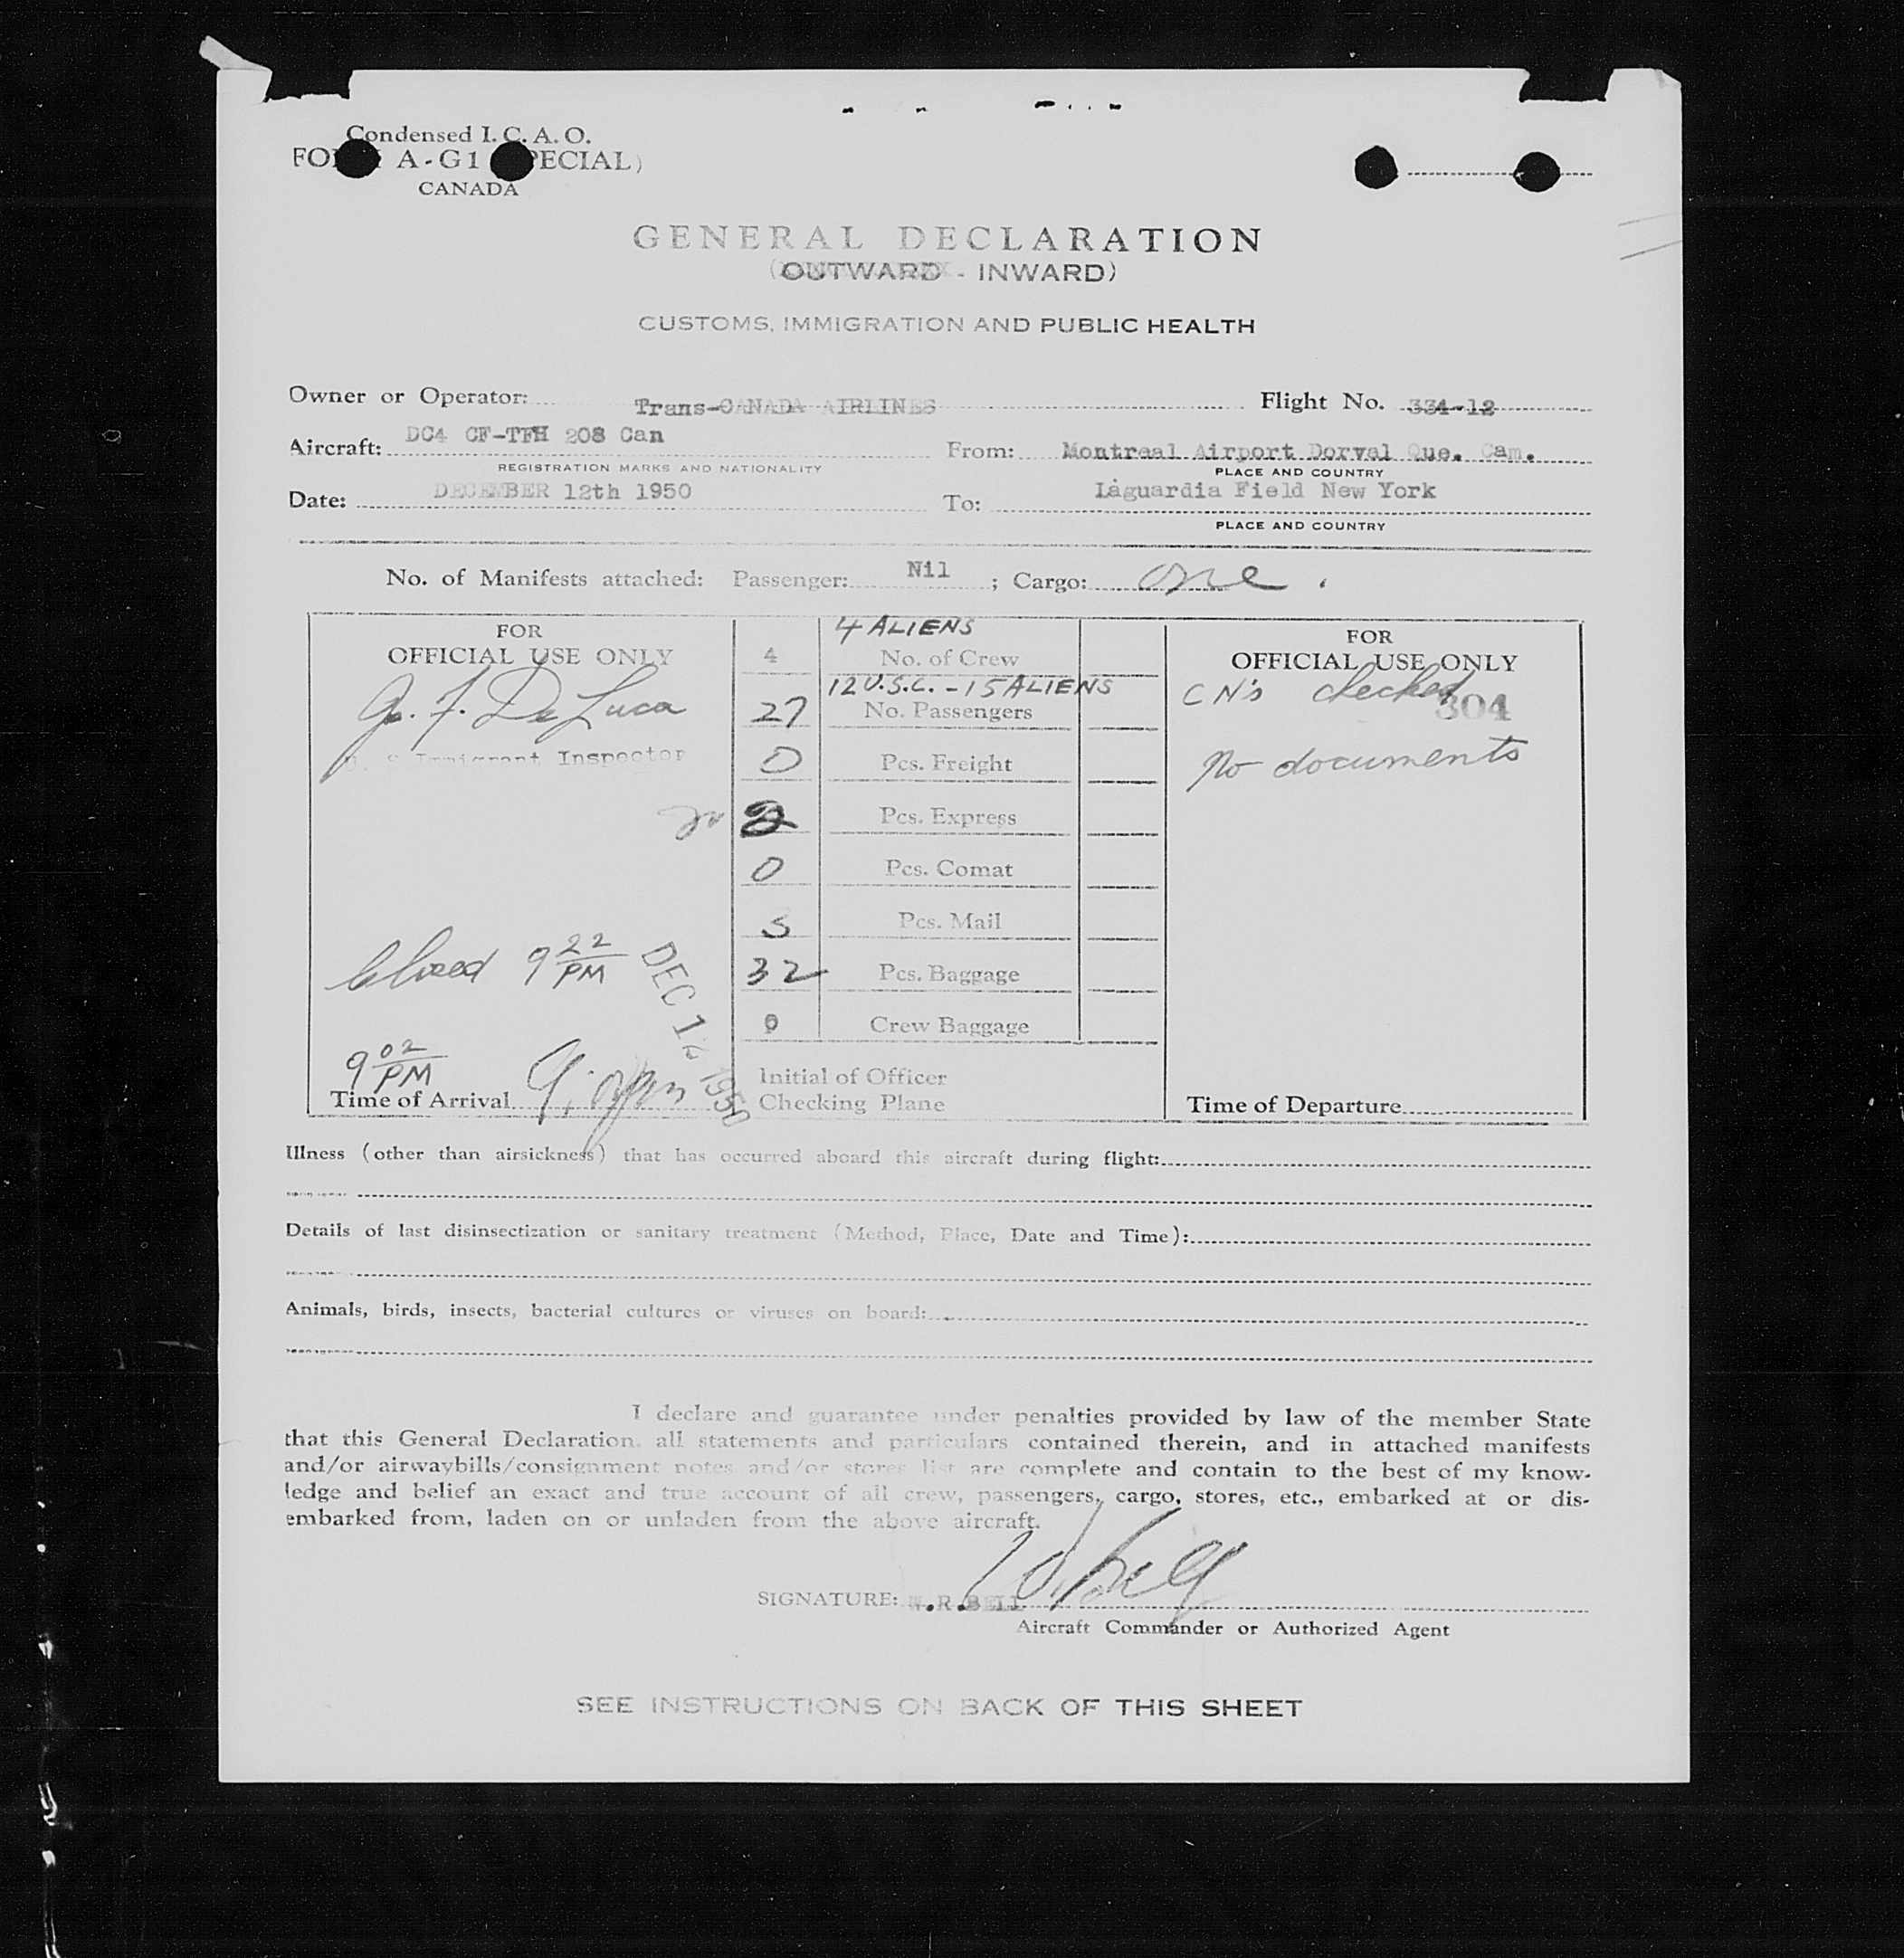 Condensed I. C. A. O.
FORM A-G1 (SPECIAL)
CANADA
GENERAL DECLARATION
(OUTWARD - INWARD)
CUSTOMS, IMMIGRATION AND PUBLIC HEALTH
Owner or Operator: Trans-CANADA AIRLINES Flight No. 334-12
Aircraft: DC4 CF-TFH 208 Can From: Montreal Airport Dorval Que. Cam.
REGISTRATION MARKS AND NATIONALITY PLACE AND COUNTRY
Date: DECEMBER 12th 1950 To: Laguardia Field New York
PLACE AND COUNTRY
No. of Manifests attached: Passenger: Nil ; Cargo: one.
FOR
OFFICIAL USE ONLY
F. De Luca
Immigrant Inspector
9 22 PM
DEC 1 1950
9 02 PM
Time of Arrival
4 ALIENS
4 No. of Crew
12 U.S.C. - 15 ALIENS
27 No. Passengers
0 Pcs. Freight
2 Pcs. Express
0 Pcs. Comat
3 Pcs. Mail
32 Pcs. Baggage
0 Crew Baggage
Initial of Officer
Checking Plane
FOR
OFFICIAL USE ONLY
CN's checked
304
No documents
Time of Departure
Illness (other than airsickness) that has occurred aboard this aircraft during flight:
Details of last disinsectization or sanitary treatment (Method, Place, Date and Time):
Animals, birds, insects, bacterial cultures or viruses on board:
I declare and guarantee under penalties provided by law of the member State
that this General Declaration, all statements and particulars contained therein, and in attached manifests
and/or airwaybills/consignment notes and/or stores list are complete and contain to the best of my know-
ledge and belief an exact and true account of all crew, passengers, cargo, stores, etc., embarked at or dis-
embarked from, laden on or unladen from the above aircraft.
SIGNATURE: W.R.BELL
Aircraft Commander or Authorized Agent
SEE INSTRUCTIONS ON BACK OF THIS SHEET